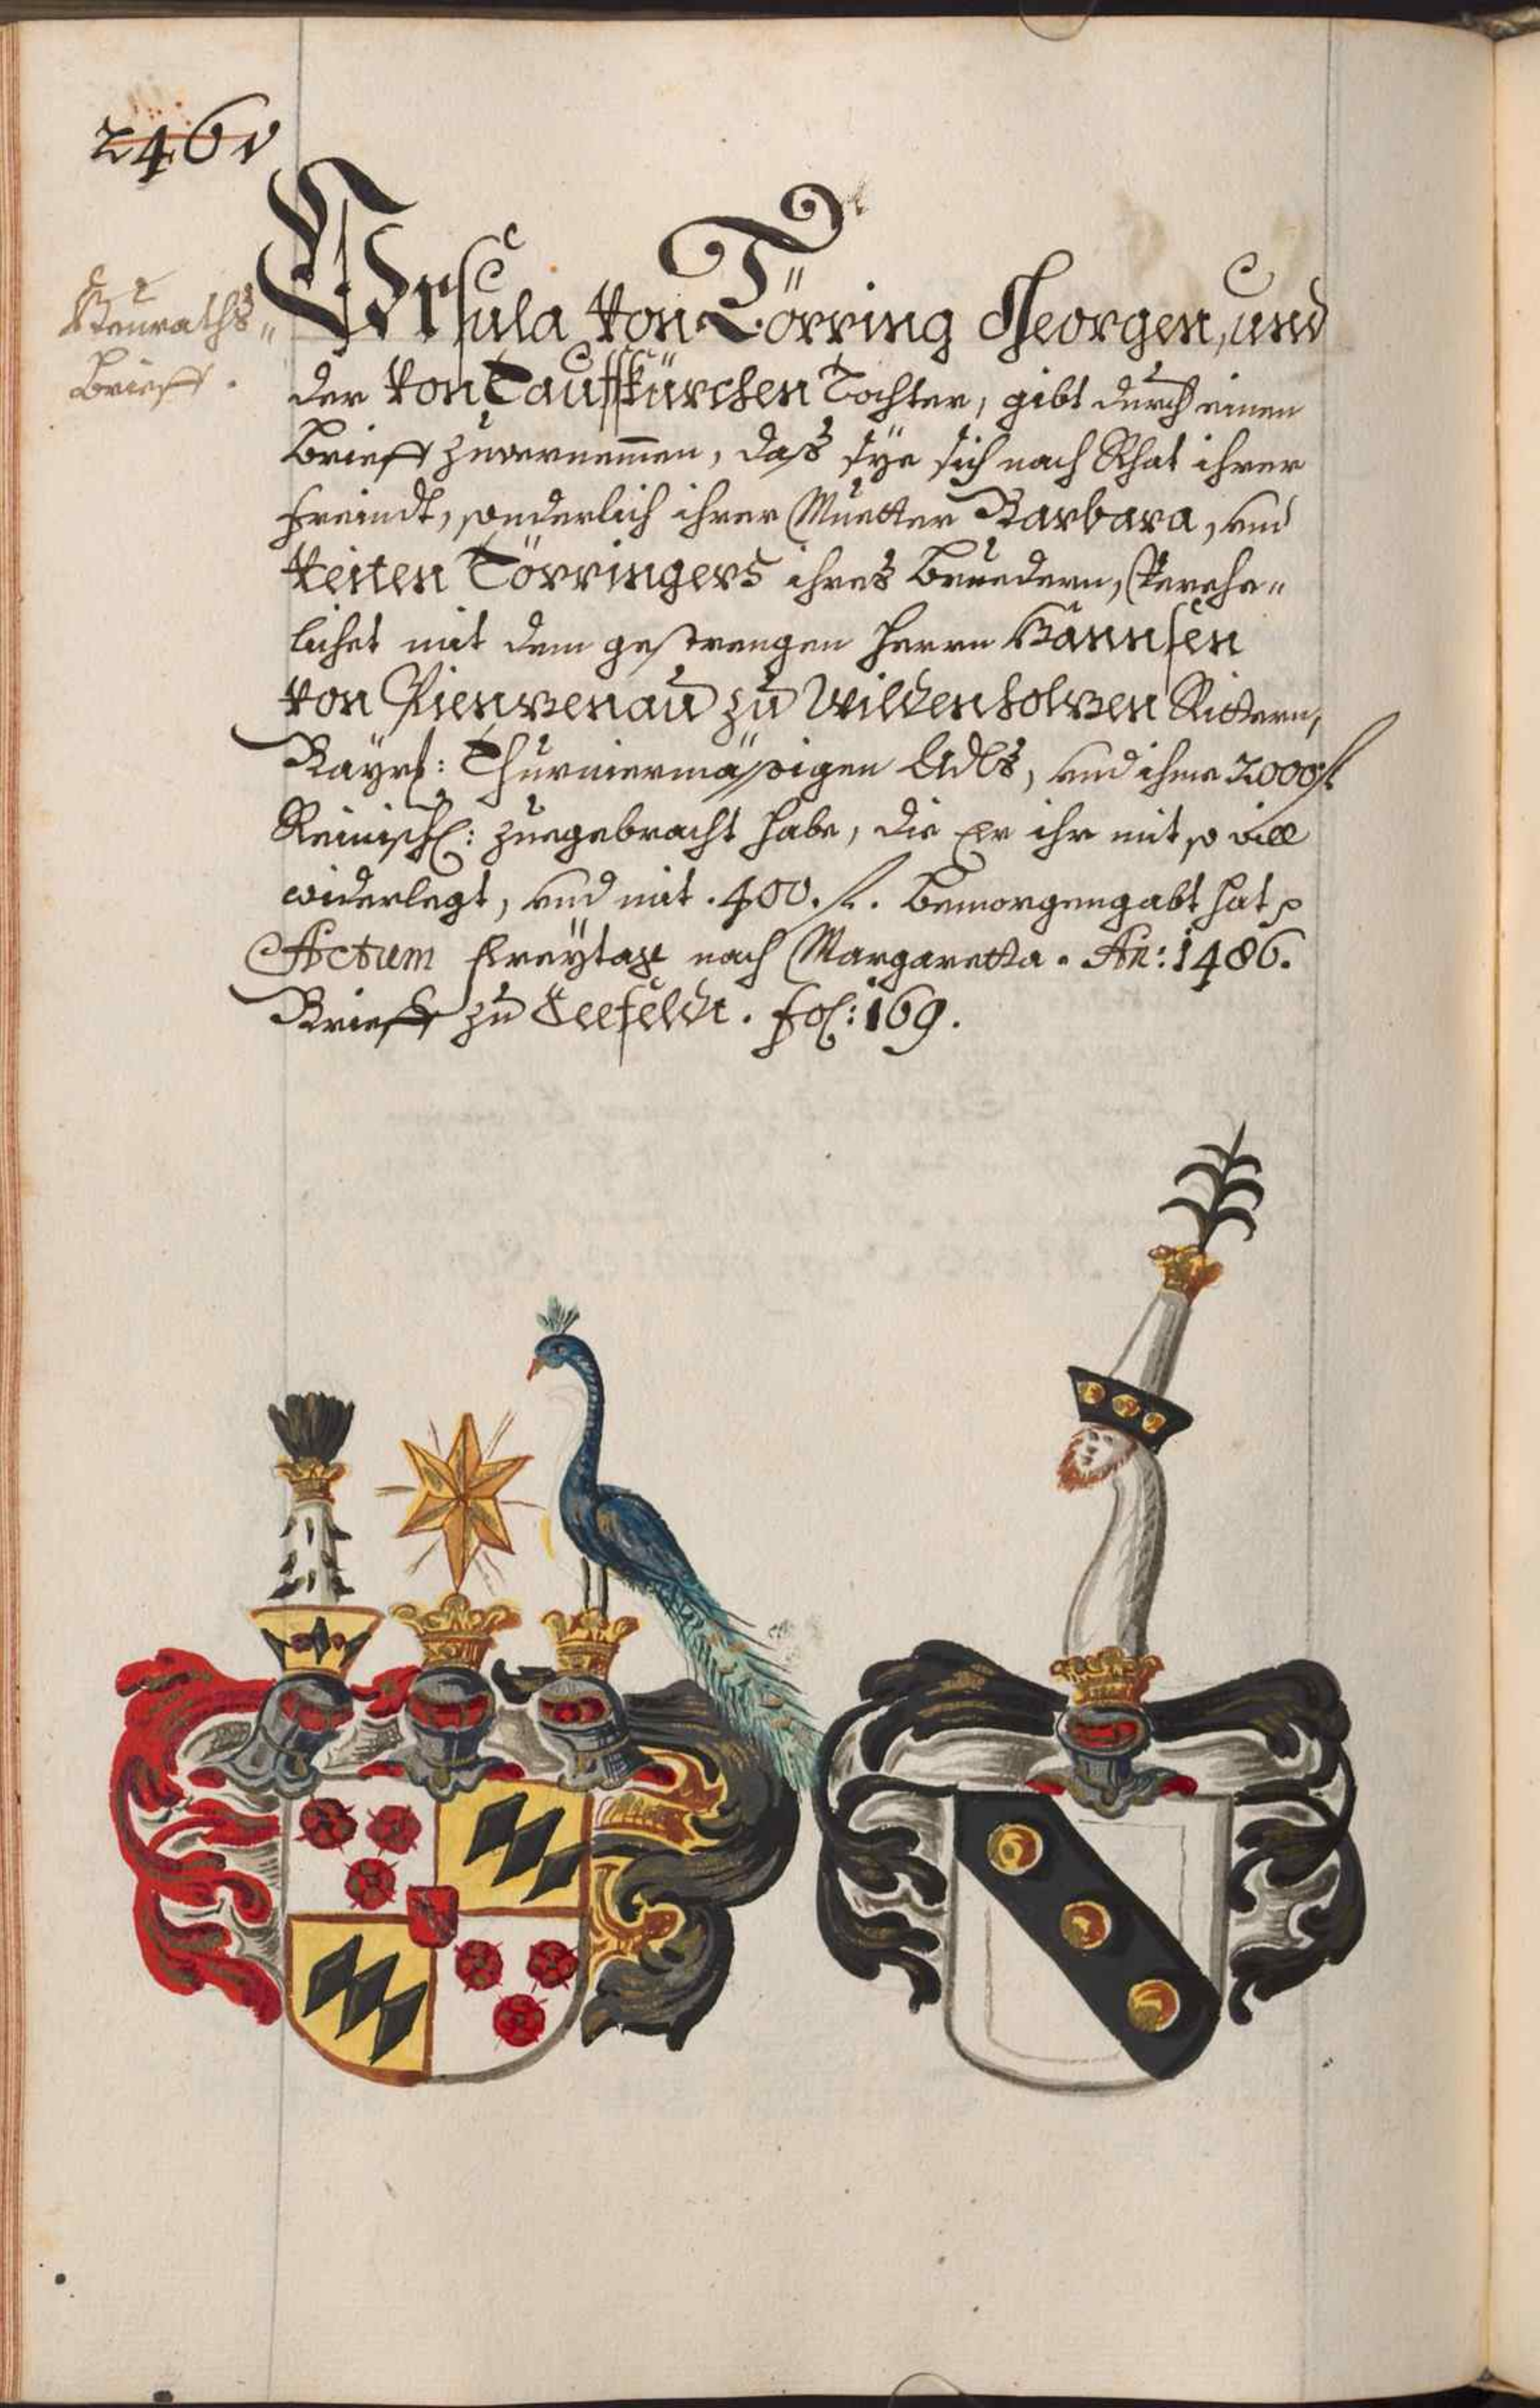 246v
Heuraths-
Brieff.
Ursula von Törring Georgen, und
der von Tauffkürchen Tochter, gibt durch einen
Brieff zuvernemmen, daß sÿe sich nach Rhat ihrer
Freindt, sonderlich ihrer Muetter Barbara, und
Veiten Törringers ihres Bruedern, Verehe-
lichet mit dem gestrengen Herrn Hannsen
von Pienzenau zu Wildenholzen Rittern,
Baÿrl: Thurniermässigen Adls, und ihme 2000 fl
Reinisch: zuegebracht habe, die Er ihr mit so vill
widerlegt, und mit .400. fl. bemorgengabt hat
Actum Freÿtag nach Margaretta. An: 1486.
Brieff zu Seefeldt. fol: 169.